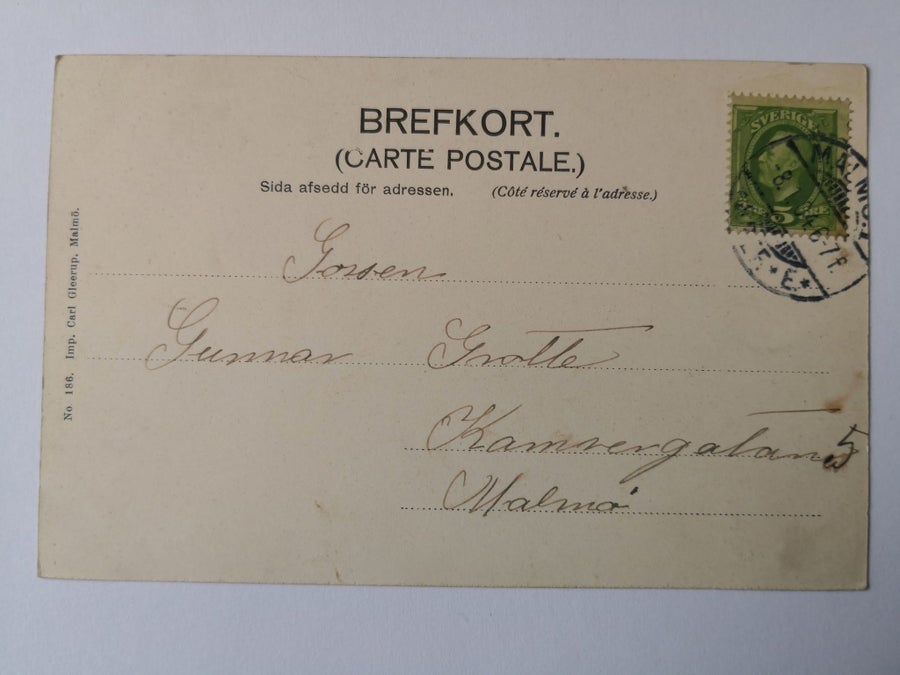 BREFKORT.
(CARTE POSTALE.)
Sida afsedd för adressen. (Côté réservé à l'adresse.)
SVERIGE
5 ÖRE
MALMÖ
6-7 F.
* E. *
Gossen
Gunnar Grotte
Kamrergatan 5
Malmö
No 186. Imp. Carl Gleerup, Malmö.